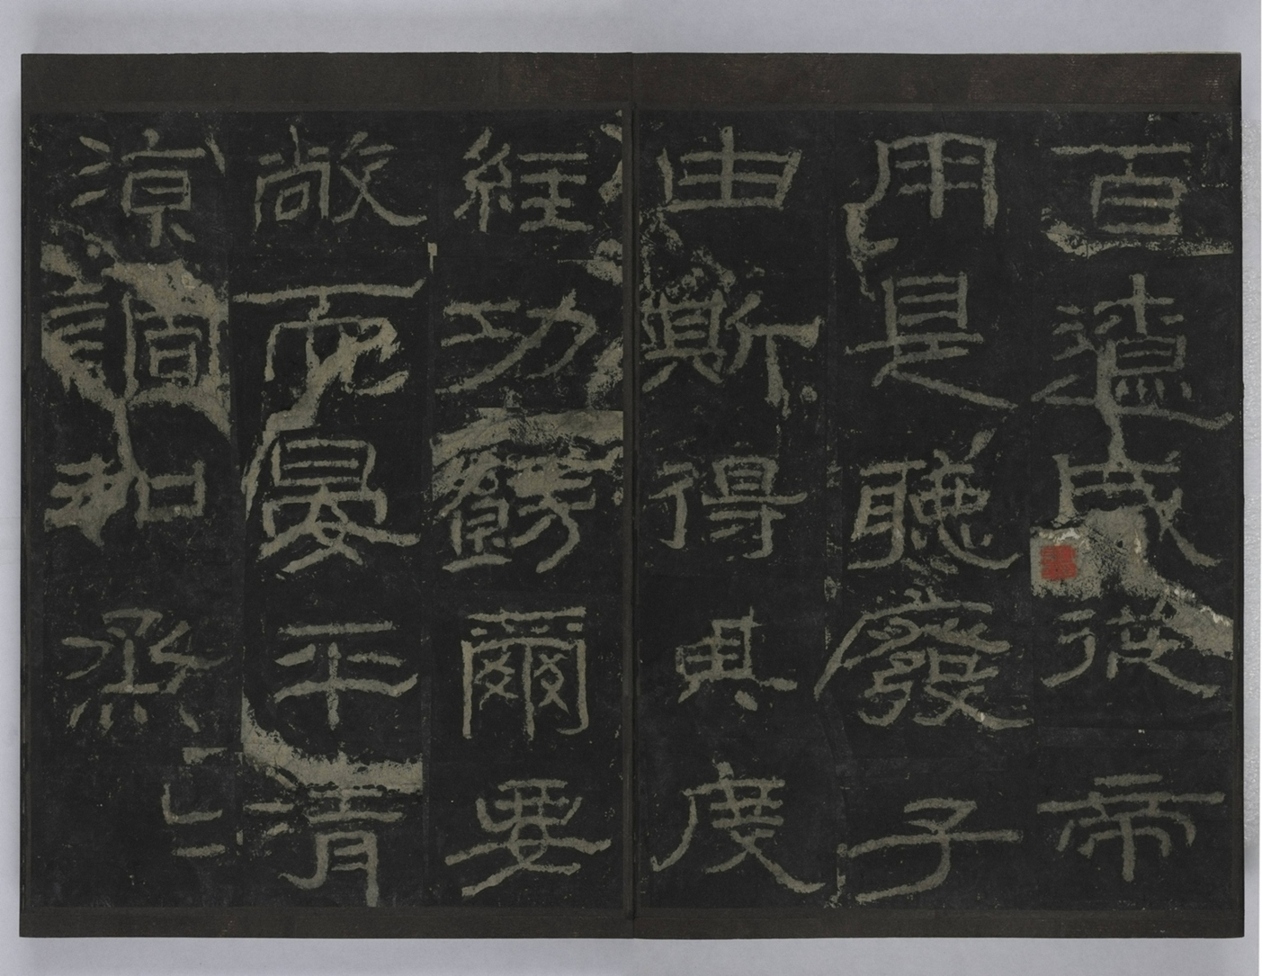 百遼咸從帝
用是聽廢子
由斯得其度
經功飭爾要
敞而晏平清
涼調和烝〻